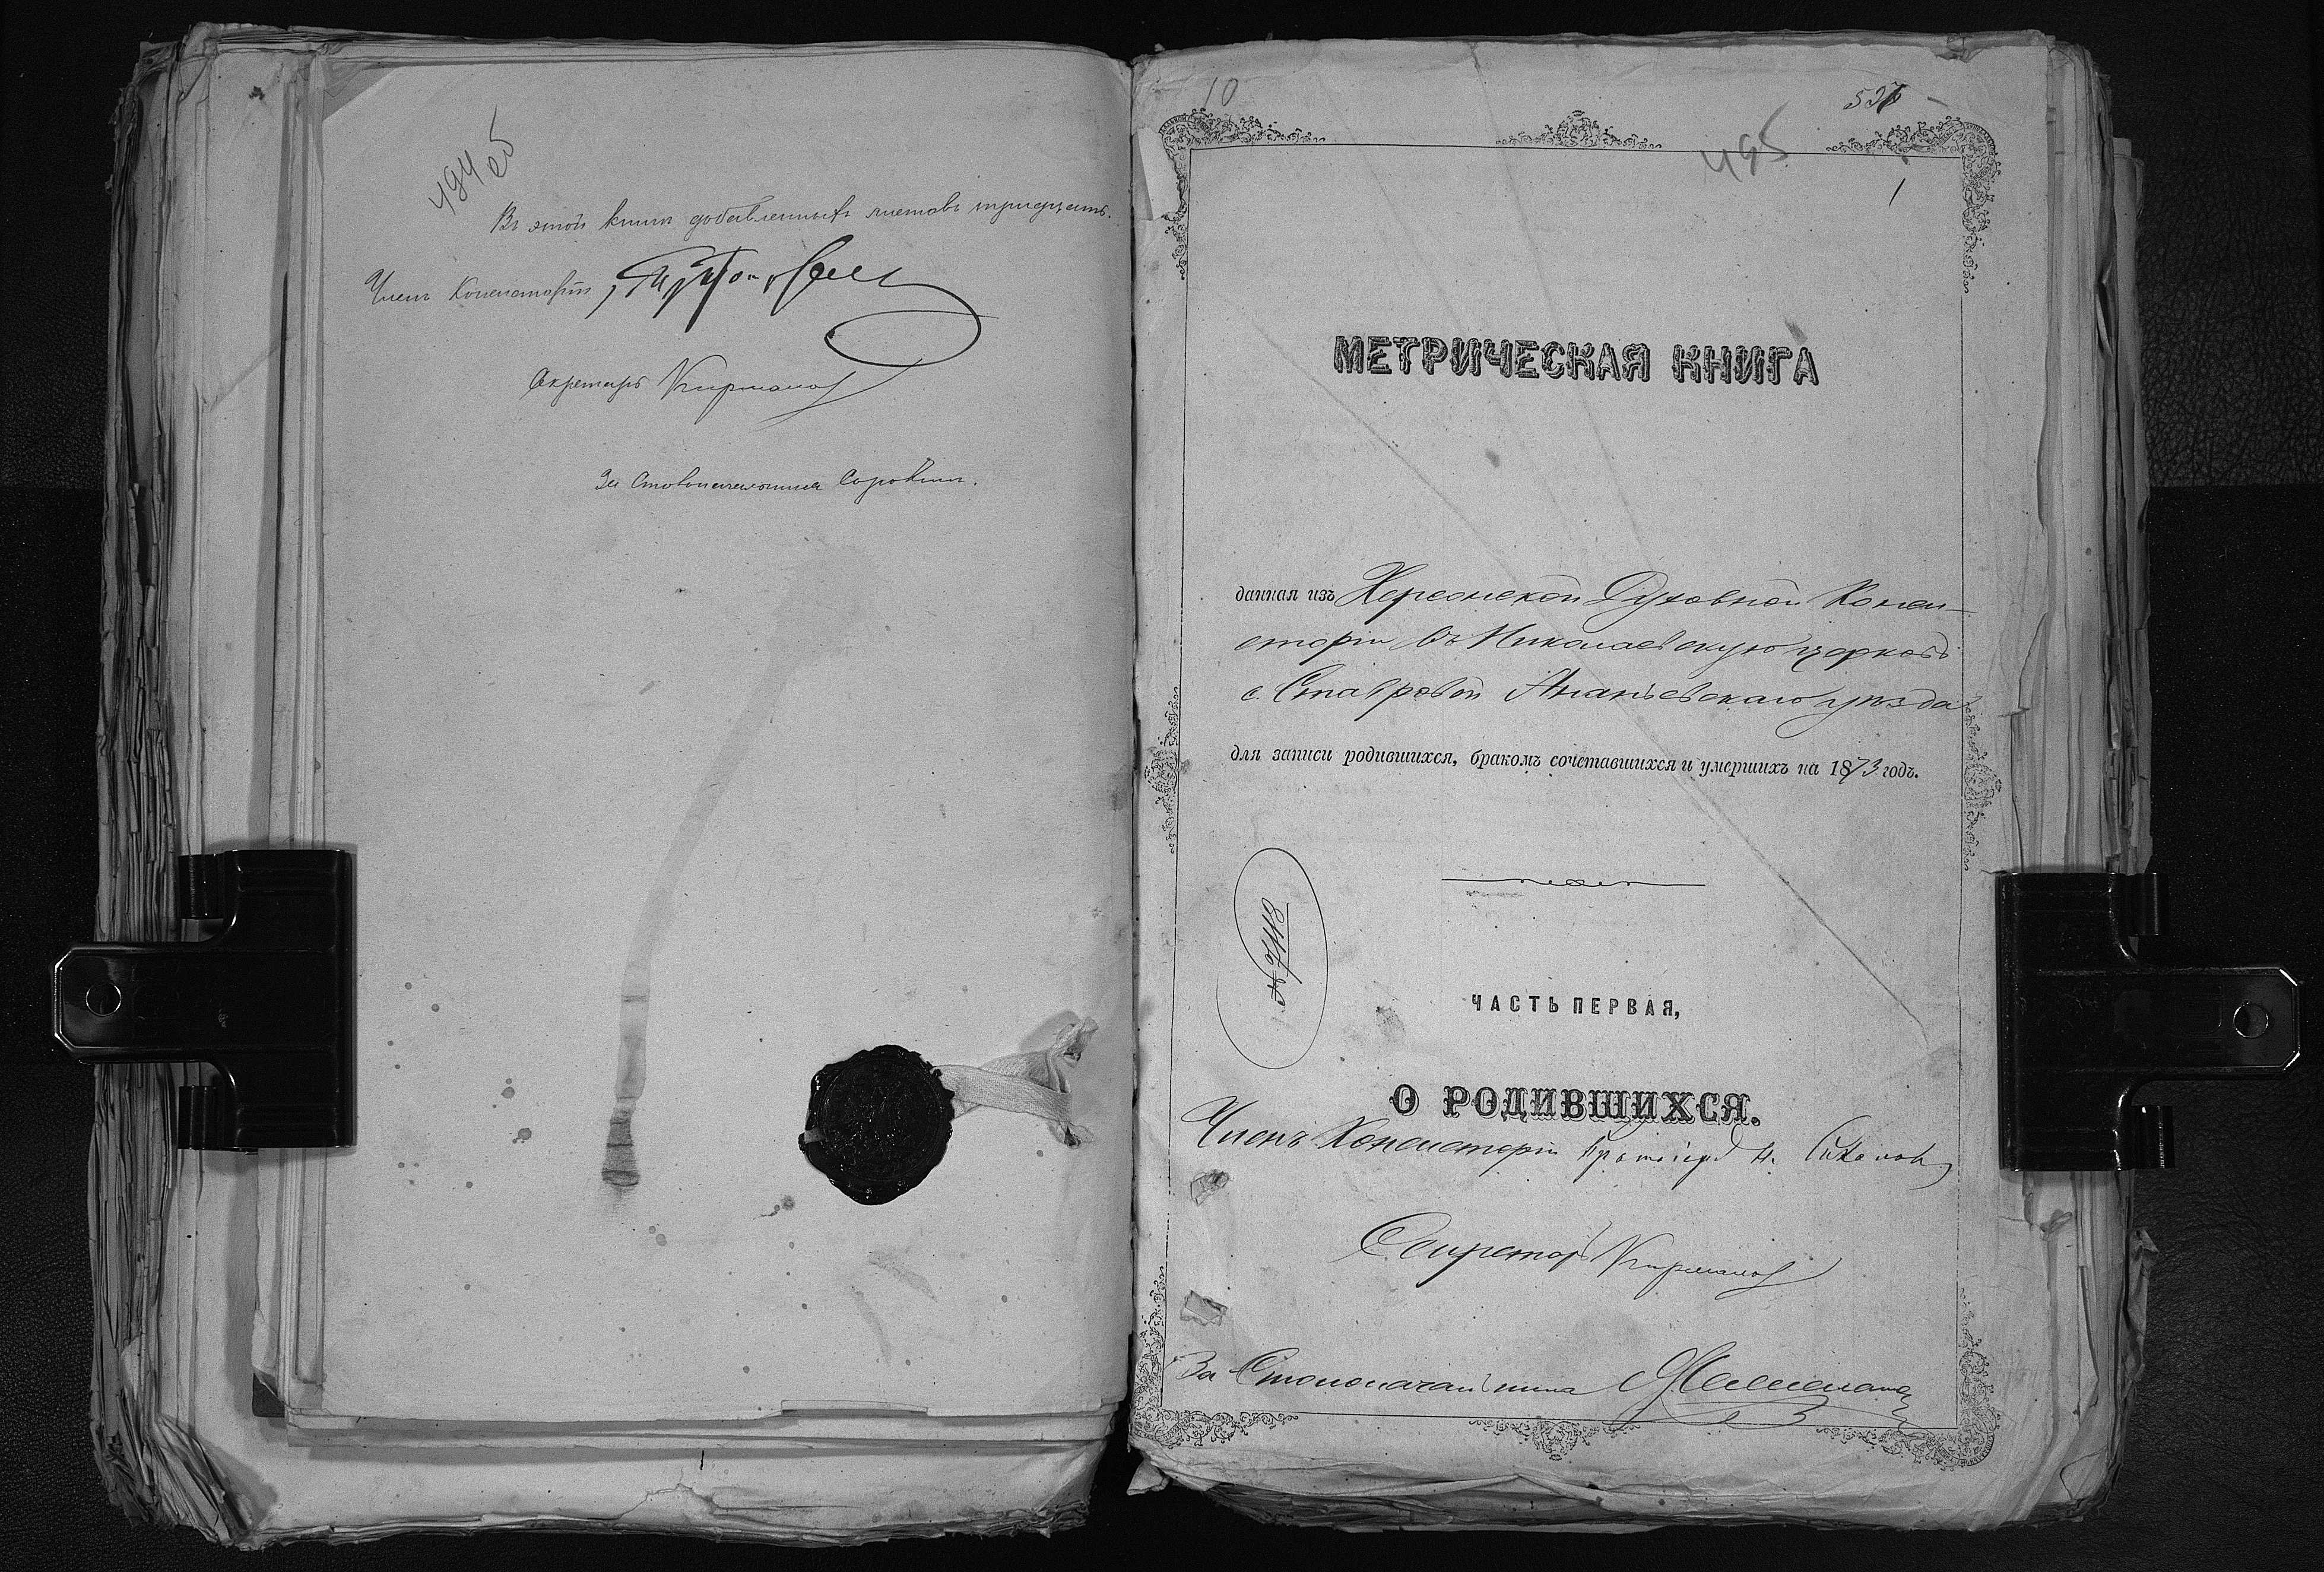 494 об
Въ этой книге добавленныхъ листовъ тридцать.
Членъ Консисторіи
Секретарь
За Столоначальника Сорокин.
10
537
495
1
МЕТРИЧЕСКАЯ КНИГА
данная изъ Херсонской Духовной Конси-
сторіи въ Николаевскую церковь
с. Ставровой Ананьевскаго уѣзда
для записи родившихся, бракомъ сочетавшихся и умершихъ на 1873 годъ.
ЧАСТЬ ПЕРВАЯ,
О РОДИВШИХСЯ.
Членъ Консисторіи Протоіерей
Секретарь
За Столоначальника